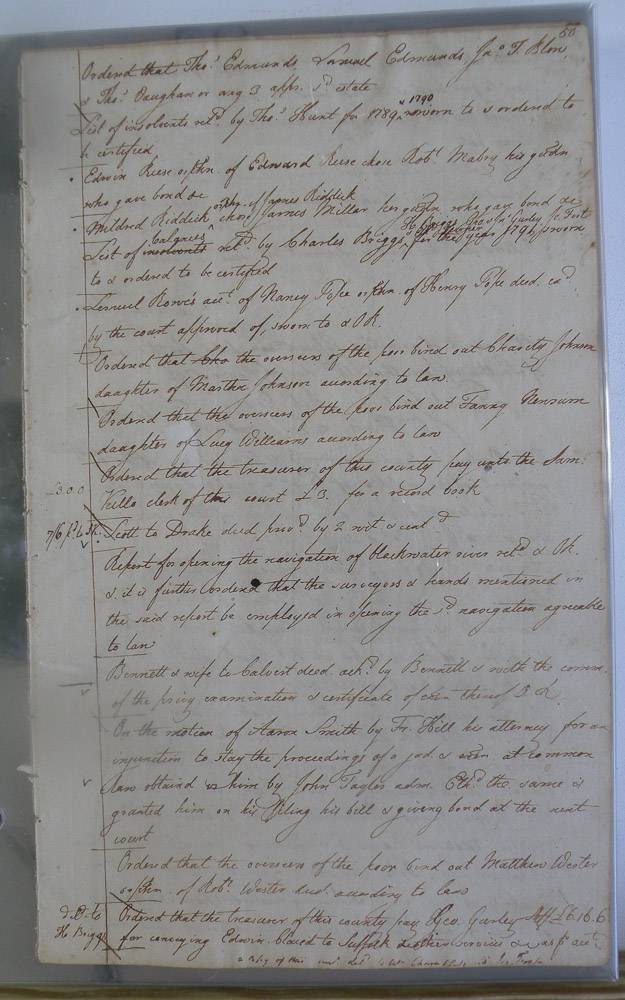 50
Ordered that Tho.s Edmunds Lemuel Edmunds Jn.o F. Blow,
& Tho.s Vaughan or any 3 appr. s.d estate
List of insolvents ret.d by Tho.s Hunt for 1789 & 1790 sworn to & ordered to
be certified
Edwin Reese orphn. of Edward Reese chose Rob.t Mabry his gardn
who gave bond &c
Mildred Riddick orphn. of James Riddick chose James Millar her gardn who gave bond &c
List of insolvents ret.d by Charles Briggs, for the year 1791 sworn
to & ordered to be certified
Lemuel Rowe's acc.t of Nancy Pope orphn. of Henry Pope deced. ex.d
by the court approved of, sworn to & OR.
Ordered that the overseers of the poor bind out Charity Johnson
daughter of Martha Johnson according to law.
Ordered that the overseers of the poor bind out Fanny
daughter of Lucy Williams according to law
Ordered that the treasurer of this county pay unto the Sam:
£3.0.0 Kello clerk of this court £3. for a record book
Scott to Drake deed prov.d by 2 wit.s & cont.d
Report for opening the navigation of blackwater river ret.d & OR.
& it is further ordered that the surveyors & hands mentioned in
the said report be employed in opening the s.d navigation agreeable
to law
Bennett & wife to Calvert deed ack.d by Bennett & with the comm.
of the privy examination & certificate of exon thereof
On the motion of Aaron Smith by Fr. Hill his attorney for an
injunction to stay the proceedings of a jud. & exon at common
law obtaind him by John Taylor adm. the same is
granted him on his filing his bill & giving bond at the next
court
Ordered that the overseers of the poor bind out Matthew Wester
orphn. of Rob.t Wester deced. according to law
Ordered that the treasurer of this county pay Geo. Gurley £6.16.6
for conveying Edwin to Suffolk & other services as p.r acc.t